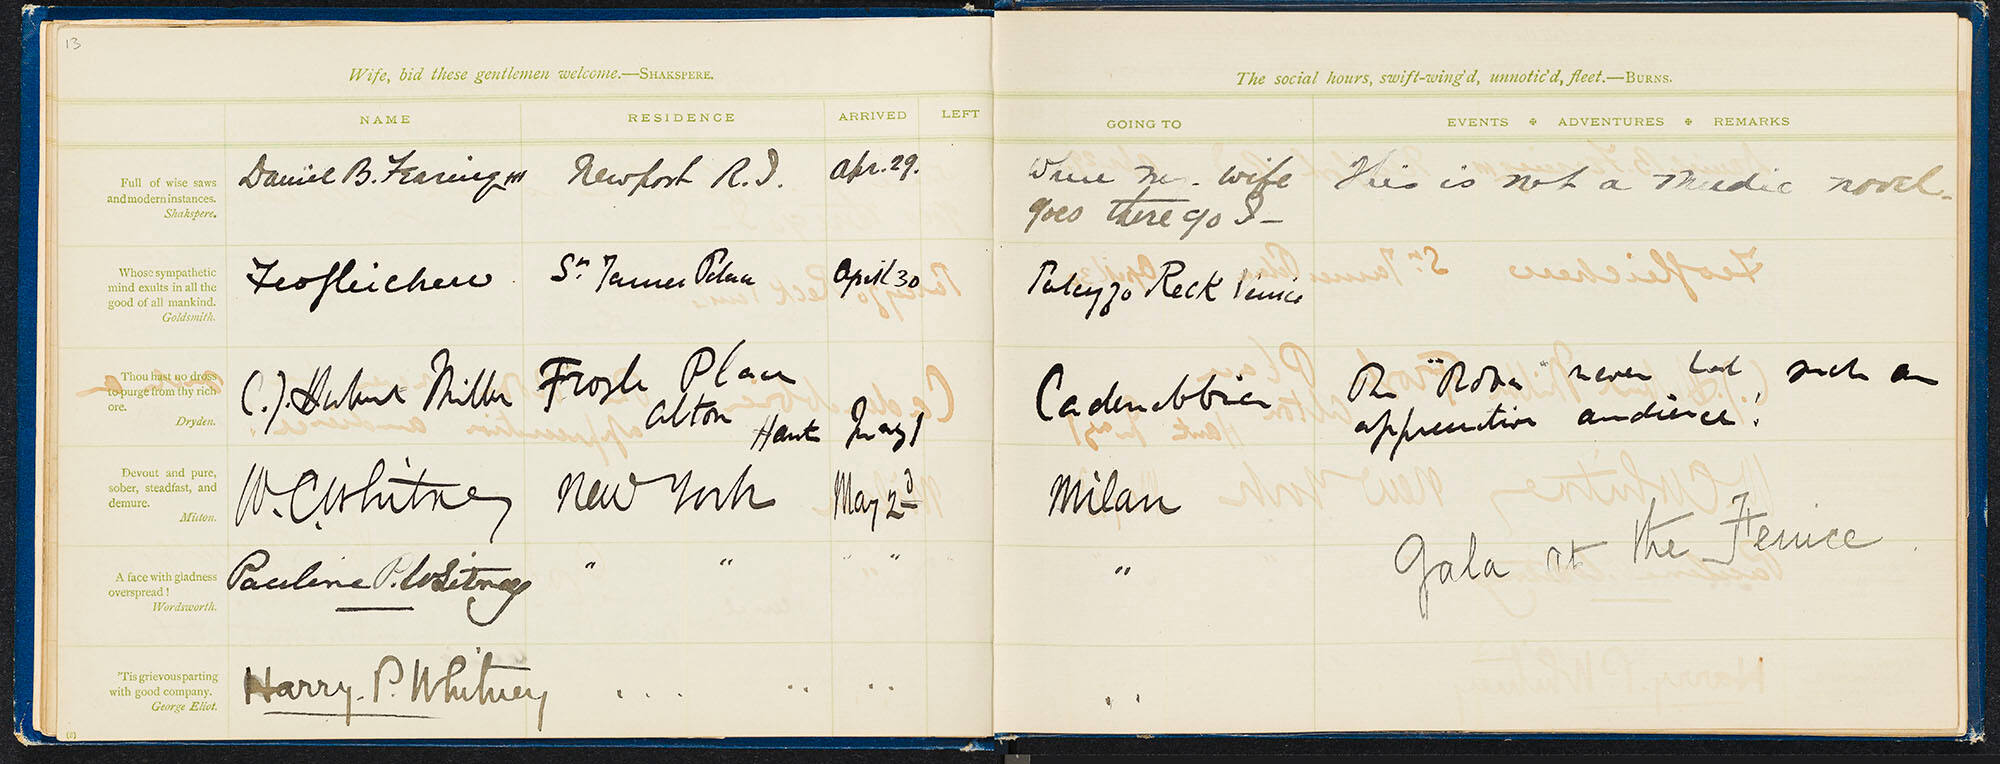 13
Wife, bid these gentlemen welcome.—SHAKSPERE.
NAME RESIDENCE ARRIVED LEFT
Full of wise saws
and modern instances.
Shakspere.
Daniel B. Fearing Newport R.I. Apr. 29.
Whose sympathetic
mind exults in all the
good of all mankind.
Goldsmith.
Feo Gleichen St. James Palace April 30
Thou hast no dross
to purge from thy rich
ore.
Dryden.
C. J. Herbert Miller Froyle Place
Alton
Hants May 1
Devout and pure,
sober, steadfast, and
demure.
Milton.
W. C. Whitney New York May 2d
A face with gladness
overspread!
Wordsworth.
Pauline P. Whitney " " " "
'Tis grievous parting
with good company.
George Eliot.
Harry. P. Whitney
The social hours, swift-wing'd, unnotic'd, fleet.—BURNS.
GOING TO EVENTS ✠ ADVENTURES ✠ REMARKS
Where my wife
goes there go I— This is not a novel—
Palazzo Reck Venice
Cadenabbia The never had such an
appreciative audience!
Milan
Gala at the Fenice
"